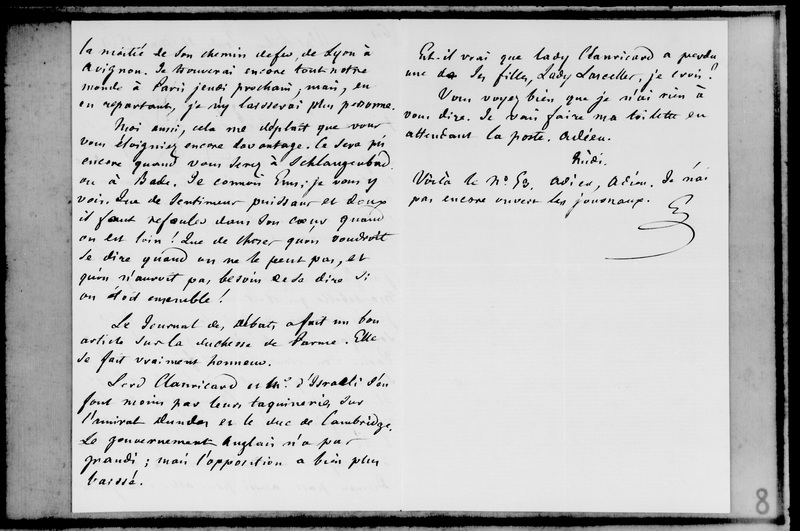 la moitié de son chemin de fer, de Lyon à
Avignon. Je trouverai encore tout notre
monde à Paris jeudi prochain; mais, en
en repartant, je n'y laisserai plus personne.
Moi aussi, cela me déplaît que vous
vous éloigniez encore davantage. Ce sera pis
encore quand vous serez à Schlangenbad
ou à Bade. Je connois Ems; je vous y
vois. Que de sentimens puissans et doux
il faut refouler dans son cœur quand
on est loin! Que de choses qu'on voudroit
se dire quand on ne le peut pas, et
qu'on n'auroit pas besoin de se dire si
on étoit ensemble!
Le Journal des Débats a fait un bon
article sur la duchesse de Parme. Elle
se fait vraiment honneur.
Lord Clanricard et Mr. d'Israeli s'en
font moins par leurs taquineries sur
l'amiral Dundas et le duc de Cambridge.
Le gouvernement Anglais n'a pas
grandi; mais l'opposition a bien plus
baissé.
Est-il vrai que lady Clanricard a perdu
une de ses filles, Lady Lascelles, je crois?
Vous voyez bien que je n'ai rien à
vous dire. Je vais faire ma toilette en
attendant la poste. Adieu.
Midi.
Voilà le No. 53. Adieu, Adieu. Je n'ai
pas encore ouvert les journaux.
G
8